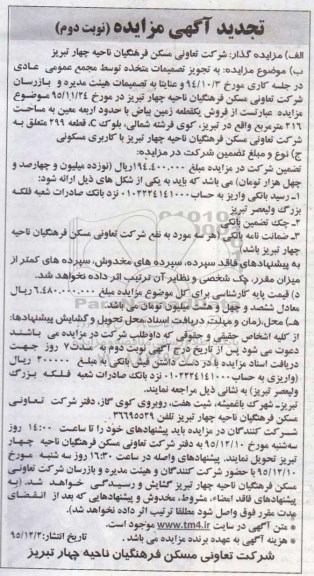 تجدید آگهی مزایده (نوبت دوم)
الف) مزایده گذار: شرکت تعاونی مسکن فرهنگیان ناحیه چهار تبریز
ب) موضوع مزایده: به تجویز تصمیمات متخذه توسط مجمع عمومی عادی
در جلسه کاری مورخ ۹۴/۱۰/۳ و عنایتا به تصمیمات هیئت مدیره و بازرسان
شرکت تعاونی مسکن فرهنگیان ناحیه چهار تبریز در مورخ ۹۵/۱۱/۲۴ موضوع
مزایده عبارتست از فروش یکقطعه زمین بیاض با حدود اربعه معین به مساحت
۲۱۶ مترمربع واقع در تبریز، کوی فرشته شمالی، بلوک C، قطعه ۲۹۹ متعلق به
شرکت تعاونی مسکن فرهنگیان ناحیه چهار تبریز با کاربری مسکونی
ج) نوع و مبلغ تضمین شرکت در مزایده:
تضمین شرکت در مزایده مبلغ ۱۹۴.۴۰۰.۰۰۰ ریال (نوزده میلیون و چهارصد و
چهل هزار تومان) می باشد که باید به یکی از شکل های ذیل ارائه شود:
۱- رسید بانکی واریز به حساب ۰۱۰۲۲۲۴۱۴۱۰۰۰ نزد بانک صادرات شعبه فلکه
بزرگ ولیعصر تبریز
۲- چک تضمین بانکی
۳- ضمانت نامه بانکی (هر سه مورد به نفع شرکت تعاونی مسکن فرهنگیان ناحیه
چهار تبریز باشد)
به پیشنهادهای فاقد سپرده، سپرده های مخدوش، سپرده های کمتر از
میزان مقرر، چک شخصی و نظایر آن ترتیب اثر داده نخواهد شد.
د) قیمت پایه کارشناسی برای کل موضوع مزایده مبلغ ۶.۴۸۰.۰۰۰.۰۰۰ ریال
معادل ششصد و چهل و هشت میلیون تومان می باشد.
هـ) محل، زمان و مهلت دریافت اسناد، محل تحویل و گشایش پیشنهادها:
از کلیه اشخاص حقیقی و حقوقی که داوطلب شرکت در مزایده می باشند
دعوت می شود پس از تاریخ درج آگهی نوبت دوم به مدت ۷ روز جهت
دریافت اسناد مزایده با در دست داشتن فیش بانکی به مبلغ ۲۰۰۰۰۰ ریال
(واریزی به حساب ۰۱۰۲۲۲۴۱۴۱۰۰۰ نزد بانک صادرات شعبه فلکه بزرگ
ولیعصر تبریز) به نشانی ذیل مراجعه نمایند.
تبریز، شهرک باغمیشه، ثبت هفت، روبروی کوی گاز، دفتر شرکت تعاونی
مسکن فرهنگیان ناحیه چهار تبریز تلفن ۳۶۶۹۵۵۲۹
شرکت کنندگان در مزایده باید پیشنهادهای خود را تا ساعت ۱۴:۰۰ روز
سه شنبه مورخ ۹۵/۱۲/۱۰ به دفتر شرکت تعاونی مسکن فرهنگیان ناحیه چهار
تبریز تحویل نمایند. پیشنهادهای واصله در ساعت ۱۶:۳۰ روز سه شنبه مورخ
۹۵/۱۲/۱۰ با حضور شرکت کنندگان و هیئت مدیره و بازرسان شرکت تعاونی
مسکن فرهنگیان ناحیه چهار تبریز گشایش و رسیدگی خواهد شد. (به
پیشنهادهای فاقد امضاء، مشروط، مخدوش و پیشنهادهایی که بعد از انقضای
مدت مقرر فوق واصل شود مطلقا ترتیب اثر داده نخواهد شد).
* متن آگهی در سایت www.tm4.ir موجود است.
* هزینه آگهی به عهده برنده مزایده می باشد. تاریخ انتشار: ۹۵/۱۲/۲
شرکت تعاونی مسکن فرهنگیان ناحیه چهار تبریز